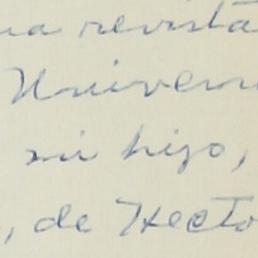 una revista
Univers
mi hijo,
, de Hecto